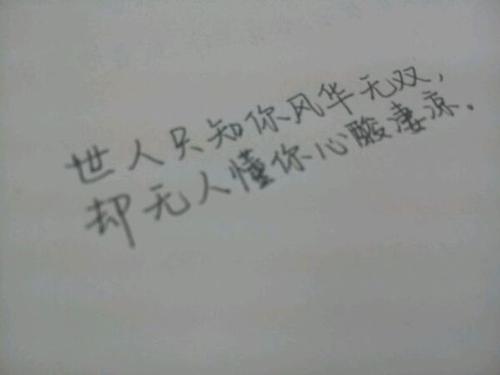 世人只知你风华无双，
却无人懂你心酸凄凉．